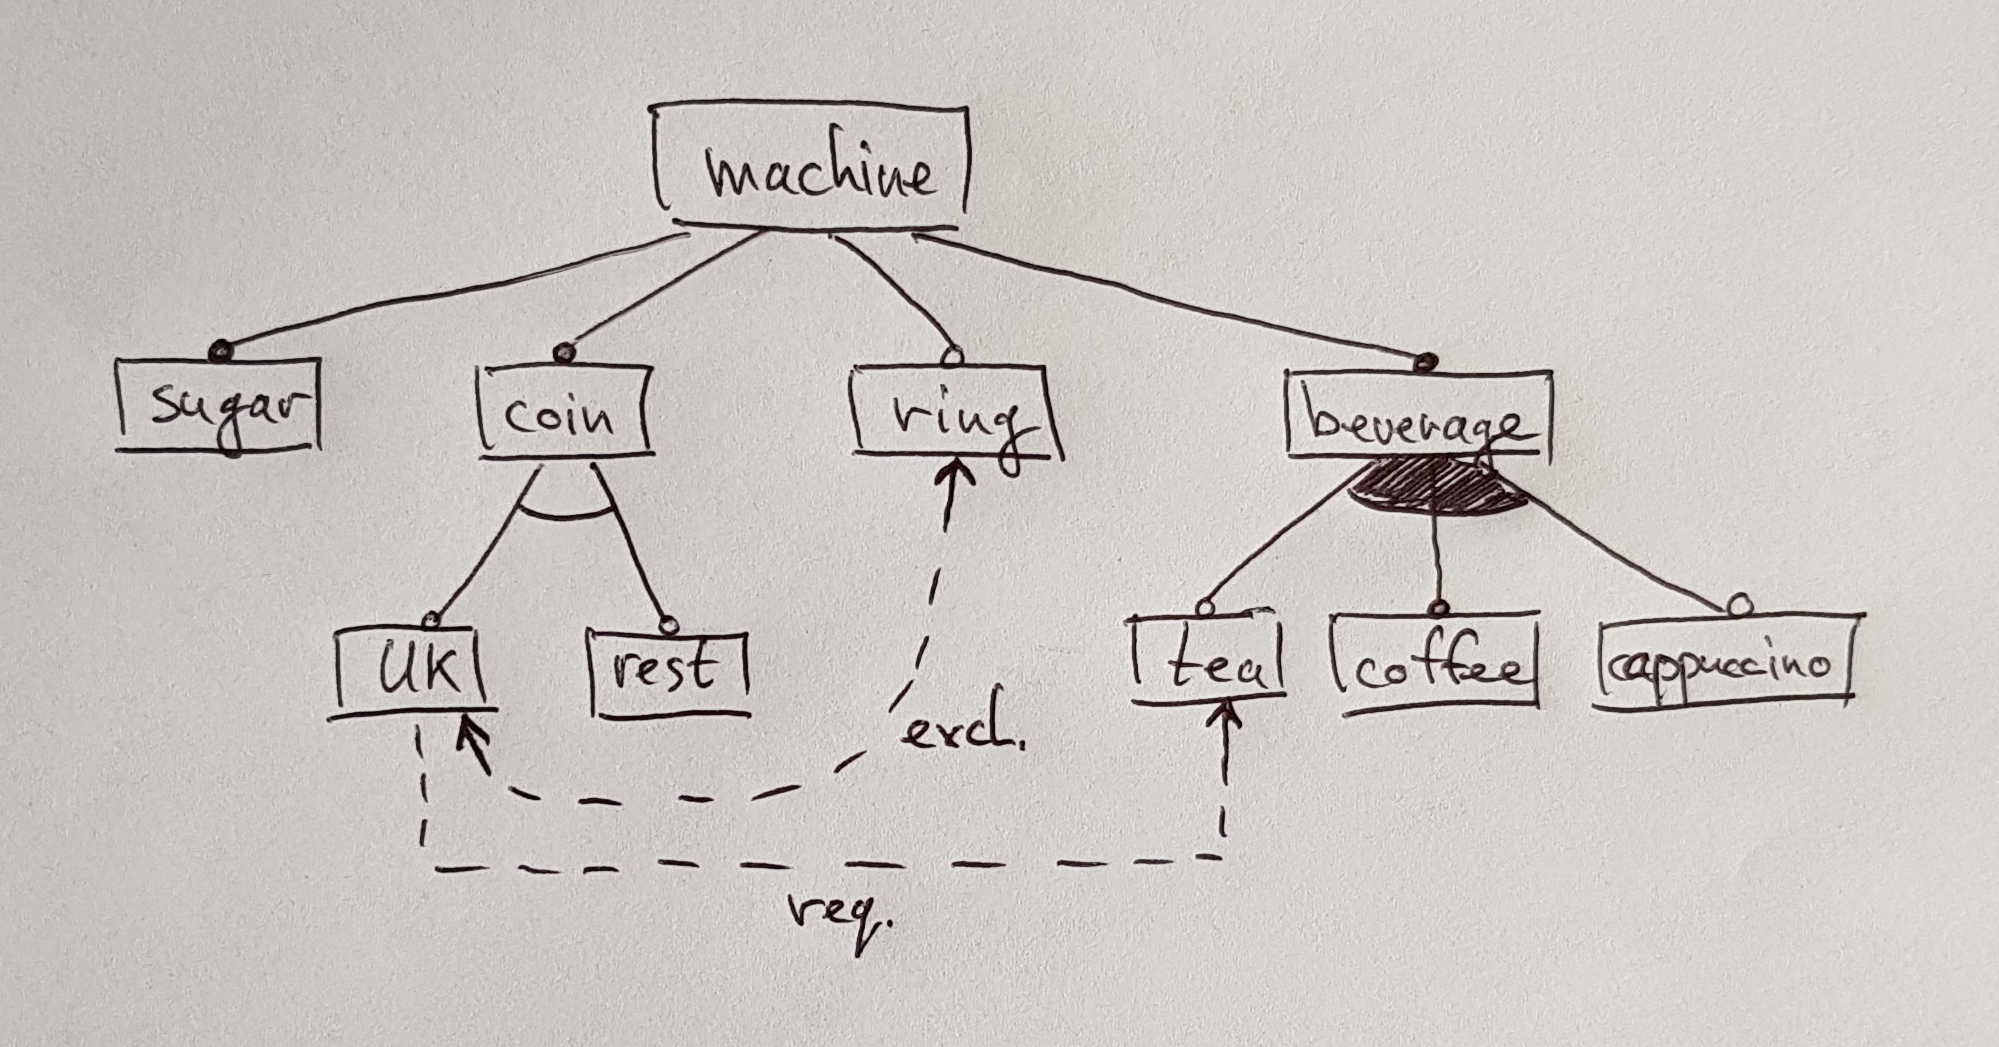 machine
sugar
coin
ring
beverage
UK
rest
tea
coffee
cappuccino
excl.
req.